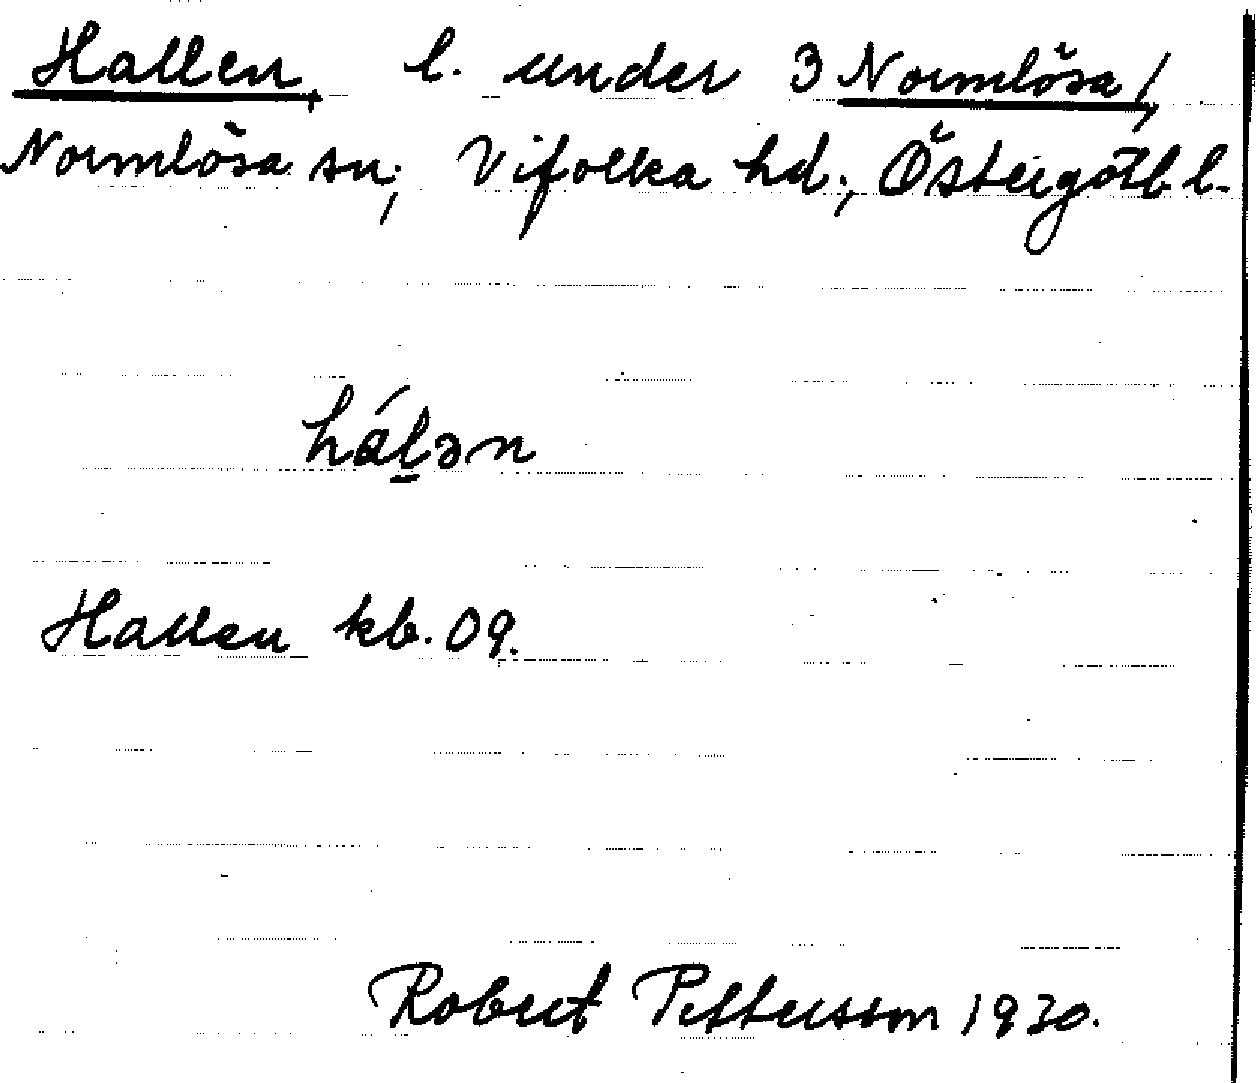 Hallen, l. under 3 Normlösa,
Normlösa sn; Vifolka hd., Östergötl. l.
hál̲ən
Hallen kb. 09.
Robert Pettersson 1930.